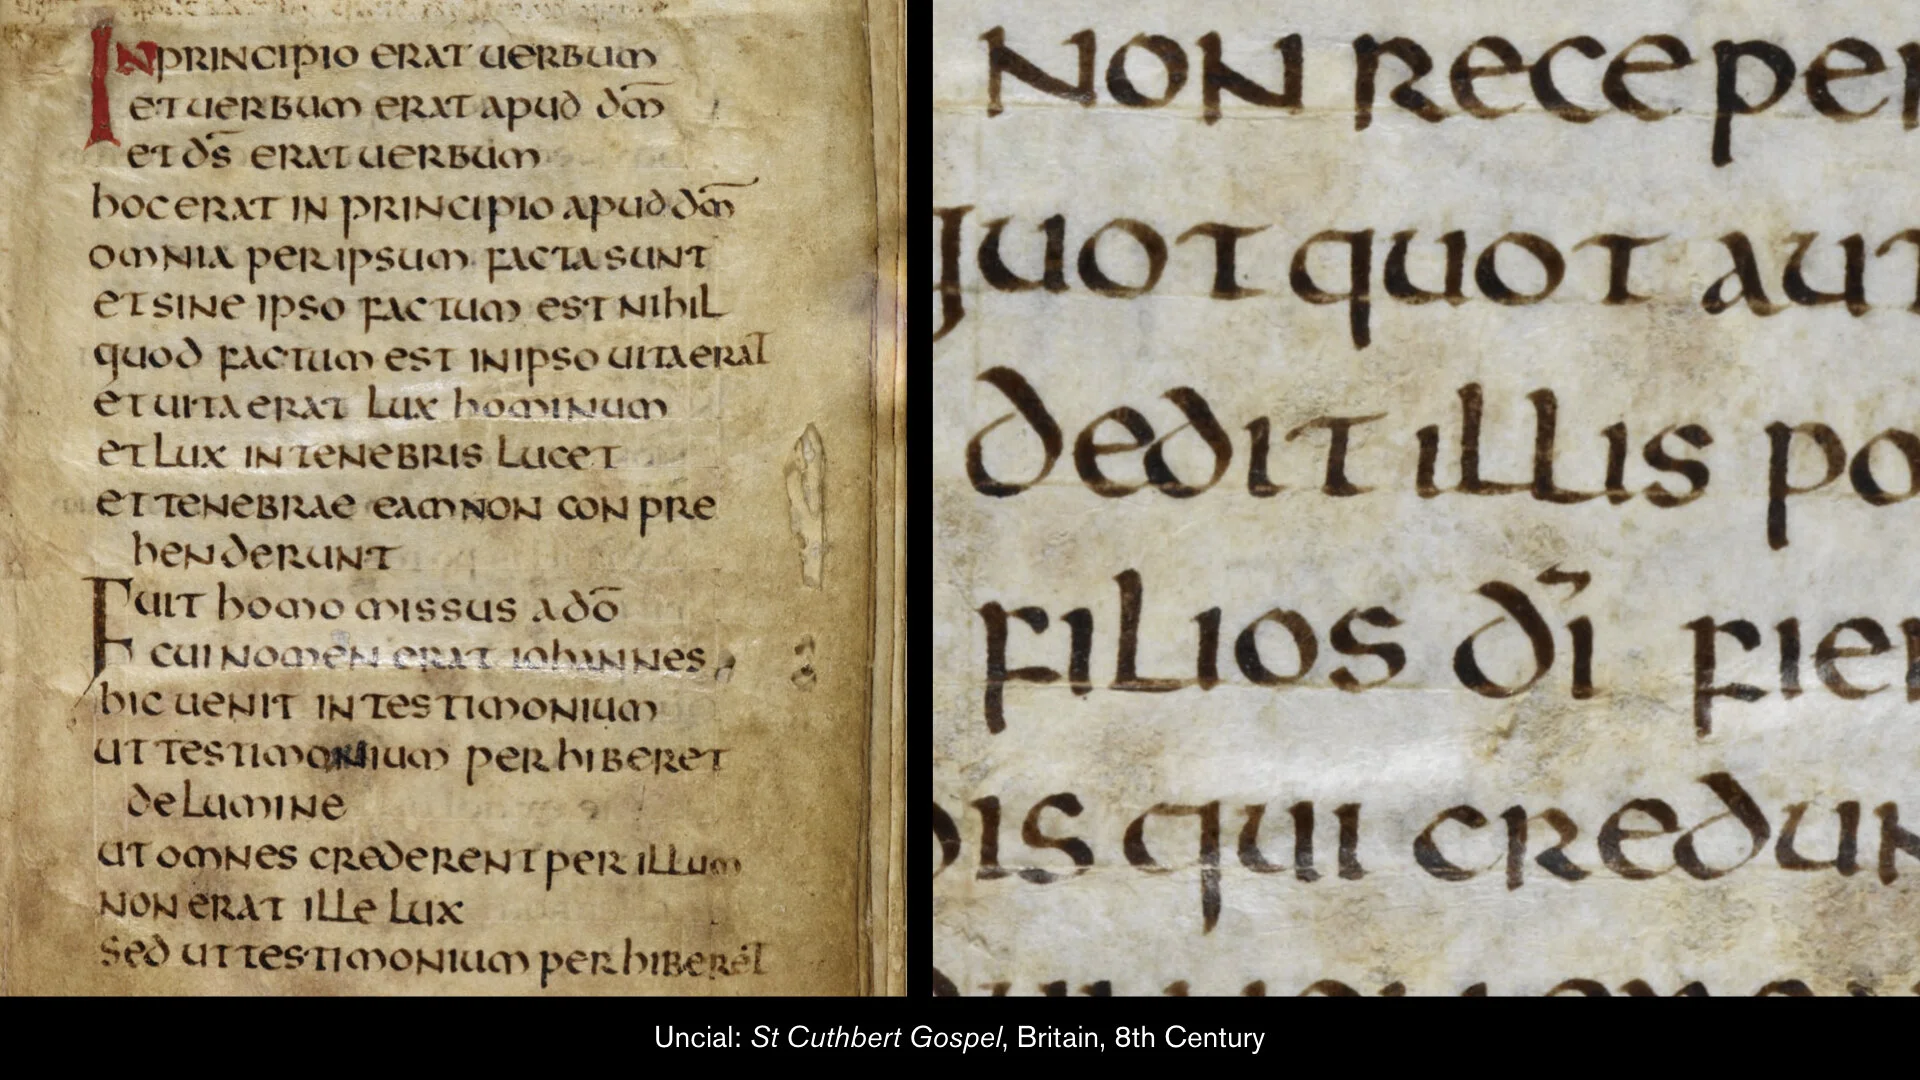 IN PRINCIPIO ERAT UERBUM
ET UERBUM ERAT APUD DM̄
ET DS̄ ERAT UERBUM
hOC ERAT IN PRINCIPIO APUD DM̄
OMNIA PER IPSUM FACTA SUNT
ET SINE IPSO FACTUM EST NIhIL
QUOD FACTUM EST IN IPSO UITA ERAT
ET UITA ERAT LUX hOMINUM
ET LUX IN TENEBRIS LUCET
ET TENEBRAE EAM NON CONPRE
hENDERUNT
FUIT hOMO MISSUS A DŌ
CUI NOMEN ERAT IOhANNES
hIC UENIT IN TESTIMONIUM
UT TESTIMONIUM PERhIBERET
DE LUMINE
UT OMNES CREDERENT PER ILLUM
NON ERAT ILLE LUX
SED UT TESTIMONIUM PERhIBERET
NON RECEPER
QUOTQUOT AUT
DEDIT ILLIS PO
FILIOS DĪ FIER
IS QUI CREDUN
Uncial: St Cuthbert Gospel, Britain, 8th Century